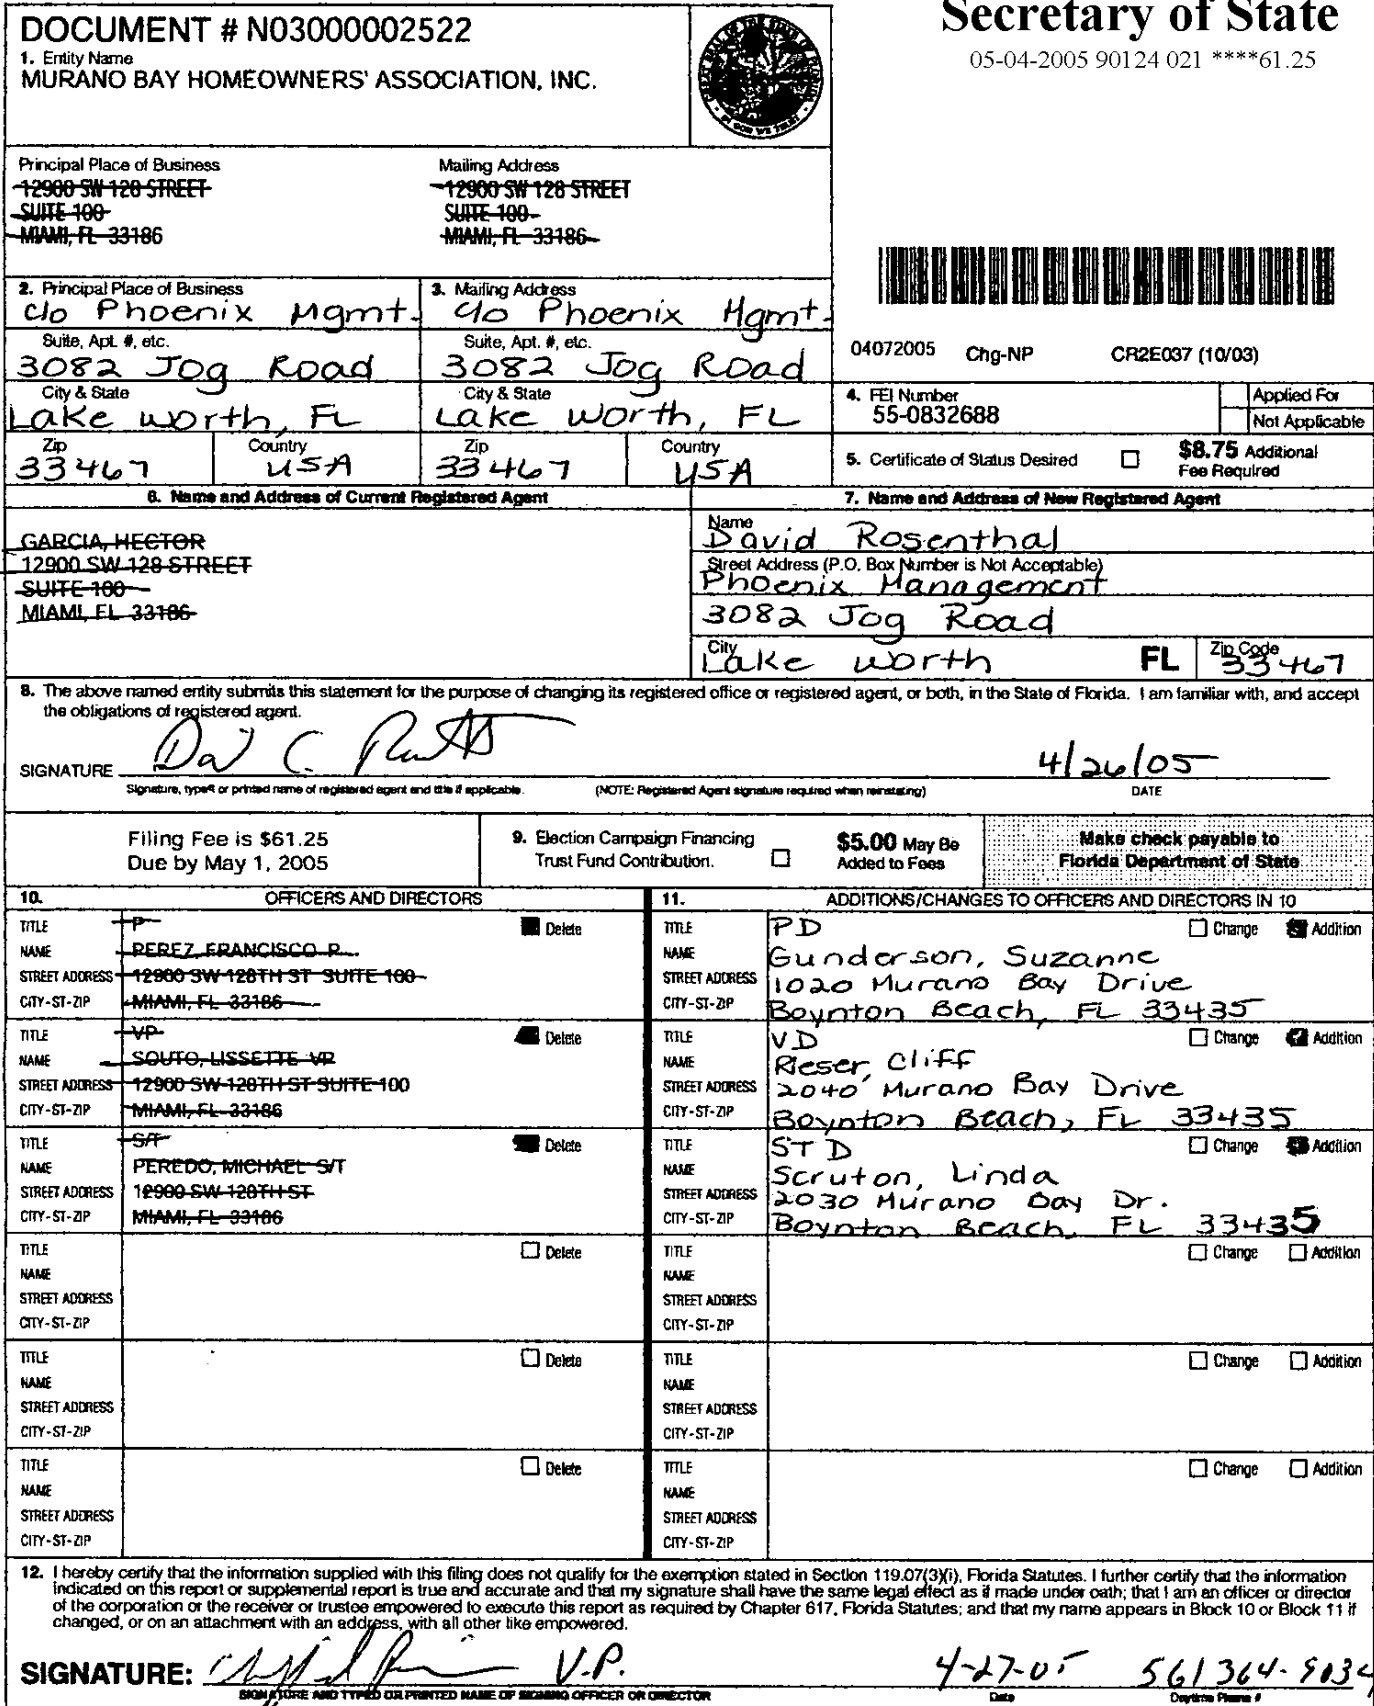 DOCUMENT # N03000002522
1. Entity Name
MURANO BAY HOMEOWNERS' ASSOCIATION, INC.
Secretary of State
05-04-2005 90124 021 ****61.25
Principal Place of Business
12900 SW 128 STREET
SUITE 100
MIAMI, FL 33186
Mailing Address
12900 SW 128 STREET
SUITE 100
MIAMI, FL 33186
2. Principal Place of Business
c/o Phoenix Mgmt.
Suite, Apt. #, etc.
3082 Jog Road
City & State
Lake Worth, FL
Zip Country
33467 USA
3. Mailing Address
c/o Phoenix Mgmt.
Suite, Apt. #, etc.
3082 Jog Road
City & State
Lake Worth, FL
Zip Country
33467 USA
04072005 Chg-NP CR2E037 (10/03)
4. FEI Number
55-0832688
Applied For
Not Applicable
5. Certificate of Status Desired
$8.75 Additional
Fee Required
6. Name and Address of Current Registered Agent
GARCIA, HECTOR
12900 SW 128 STREET
SUITE 100
MIAMI, FL 33186
7. Name and Address of New Registered Agent
Name
David Rosenthal
Street Address (P.O. Box Number is Not Acceptable)
Phoenix Management
3082 Jog Road
City
Lake Worth FL
Zip Code
33467
8. The above named entity submits this statement for the purpose of changing its registered office or registered agent, or both, in the State of Florida. I am familiar with, and accept
the obligations of registered agent.
SIGNATURE 4/26/05
Signature, typed or printed name of registered agent and title if applicable. (NOTE: Registered Agent signature required when reinstating) DATE
Filing Fee is $61.25
Due by May 1, 2005
9. Election Campaign Financing
Trust Fund Contribution.
$5.00 May Be
Added to Fees
Make check payable to
Florida Department of State
10. OFFICERS AND DIRECTORS
TITLE P Delete
NAME PEREZ, FRANCISCO P
STREET ADDRESS 12900 SW 128TH ST SUITE 100
CITY-ST-ZIP MIAMI, FL 33186
TITLE VP Delete
NAME SOUTO, LISSETTE VP
STREET ADDRESS 12900 SW 128TH ST SUITE 100
CITY-ST-ZIP MIAMI, FL 33186
TITLE S/T Delete
NAME PEREDO, MICHAEL S/T
STREET ADDRESS 12900 SW 128TH ST
CITY-ST-ZIP MIAMI, FL 33186
TITLE Delete
NAME
STREET ADDRESS
CITY-ST-ZIP
TITLE Delete
NAME
STREET ADDRESS
CITY-ST-ZIP
TITLE Delete
NAME
STREET ADDRESS
CITY-ST-ZIP
11. ADDITIONS/CHANGES TO OFFICERS AND DIRECTORS IN 10
TITLE PD Change Addition
NAME Gunderson, Suzanne
STREET ADDRESS 1020 Murano Bay Drive
CITY-ST-ZIP Boynton Beach, FL 33435
TITLE VD Change Addition
NAME Rieser, Cliff
STREET ADDRESS 2040 Murano Bay Drive
CITY-ST-ZIP Boynton Beach, FL 33435
TITLE STD Change Addition
NAME Scruton, Linda
STREET ADDRESS 2030 Murano Bay Dr.
CITY-ST-ZIP Boynton Beach, FL 33435
TITLE Change Addition
NAME
STREET ADDRESS
CITY-ST-ZIP
TITLE Change Addition
NAME
STREET ADDRESS
CITY-ST-ZIP
TITLE Change Addition
NAME
STREET ADDRESS
CITY-ST-ZIP
12. I hereby certify that the information supplied with this filing does not qualify for the exemption stated in Section 119.07(3)(i), Florida Statutes. I further certify that the information
indicated on this report or supplemental report is true and accurate and that my signature shall have the same legal effect as if made under oath; that I am an officer or director
of the corporation or the receiver or trustee empowered to execute this report as required by Chapter 617, Florida Statutes; and that my name appears in Block 10 or Block 11 if
changed, or on an attachment with an address, with all other like empowered.
SIGNATURE: V.P. 4-27-05 561 364-9034
SIGNATURE AND TYPED OR PRINTED NAME OF SIGNING OFFICER OR DIRECTOR Date Daytime Phone #